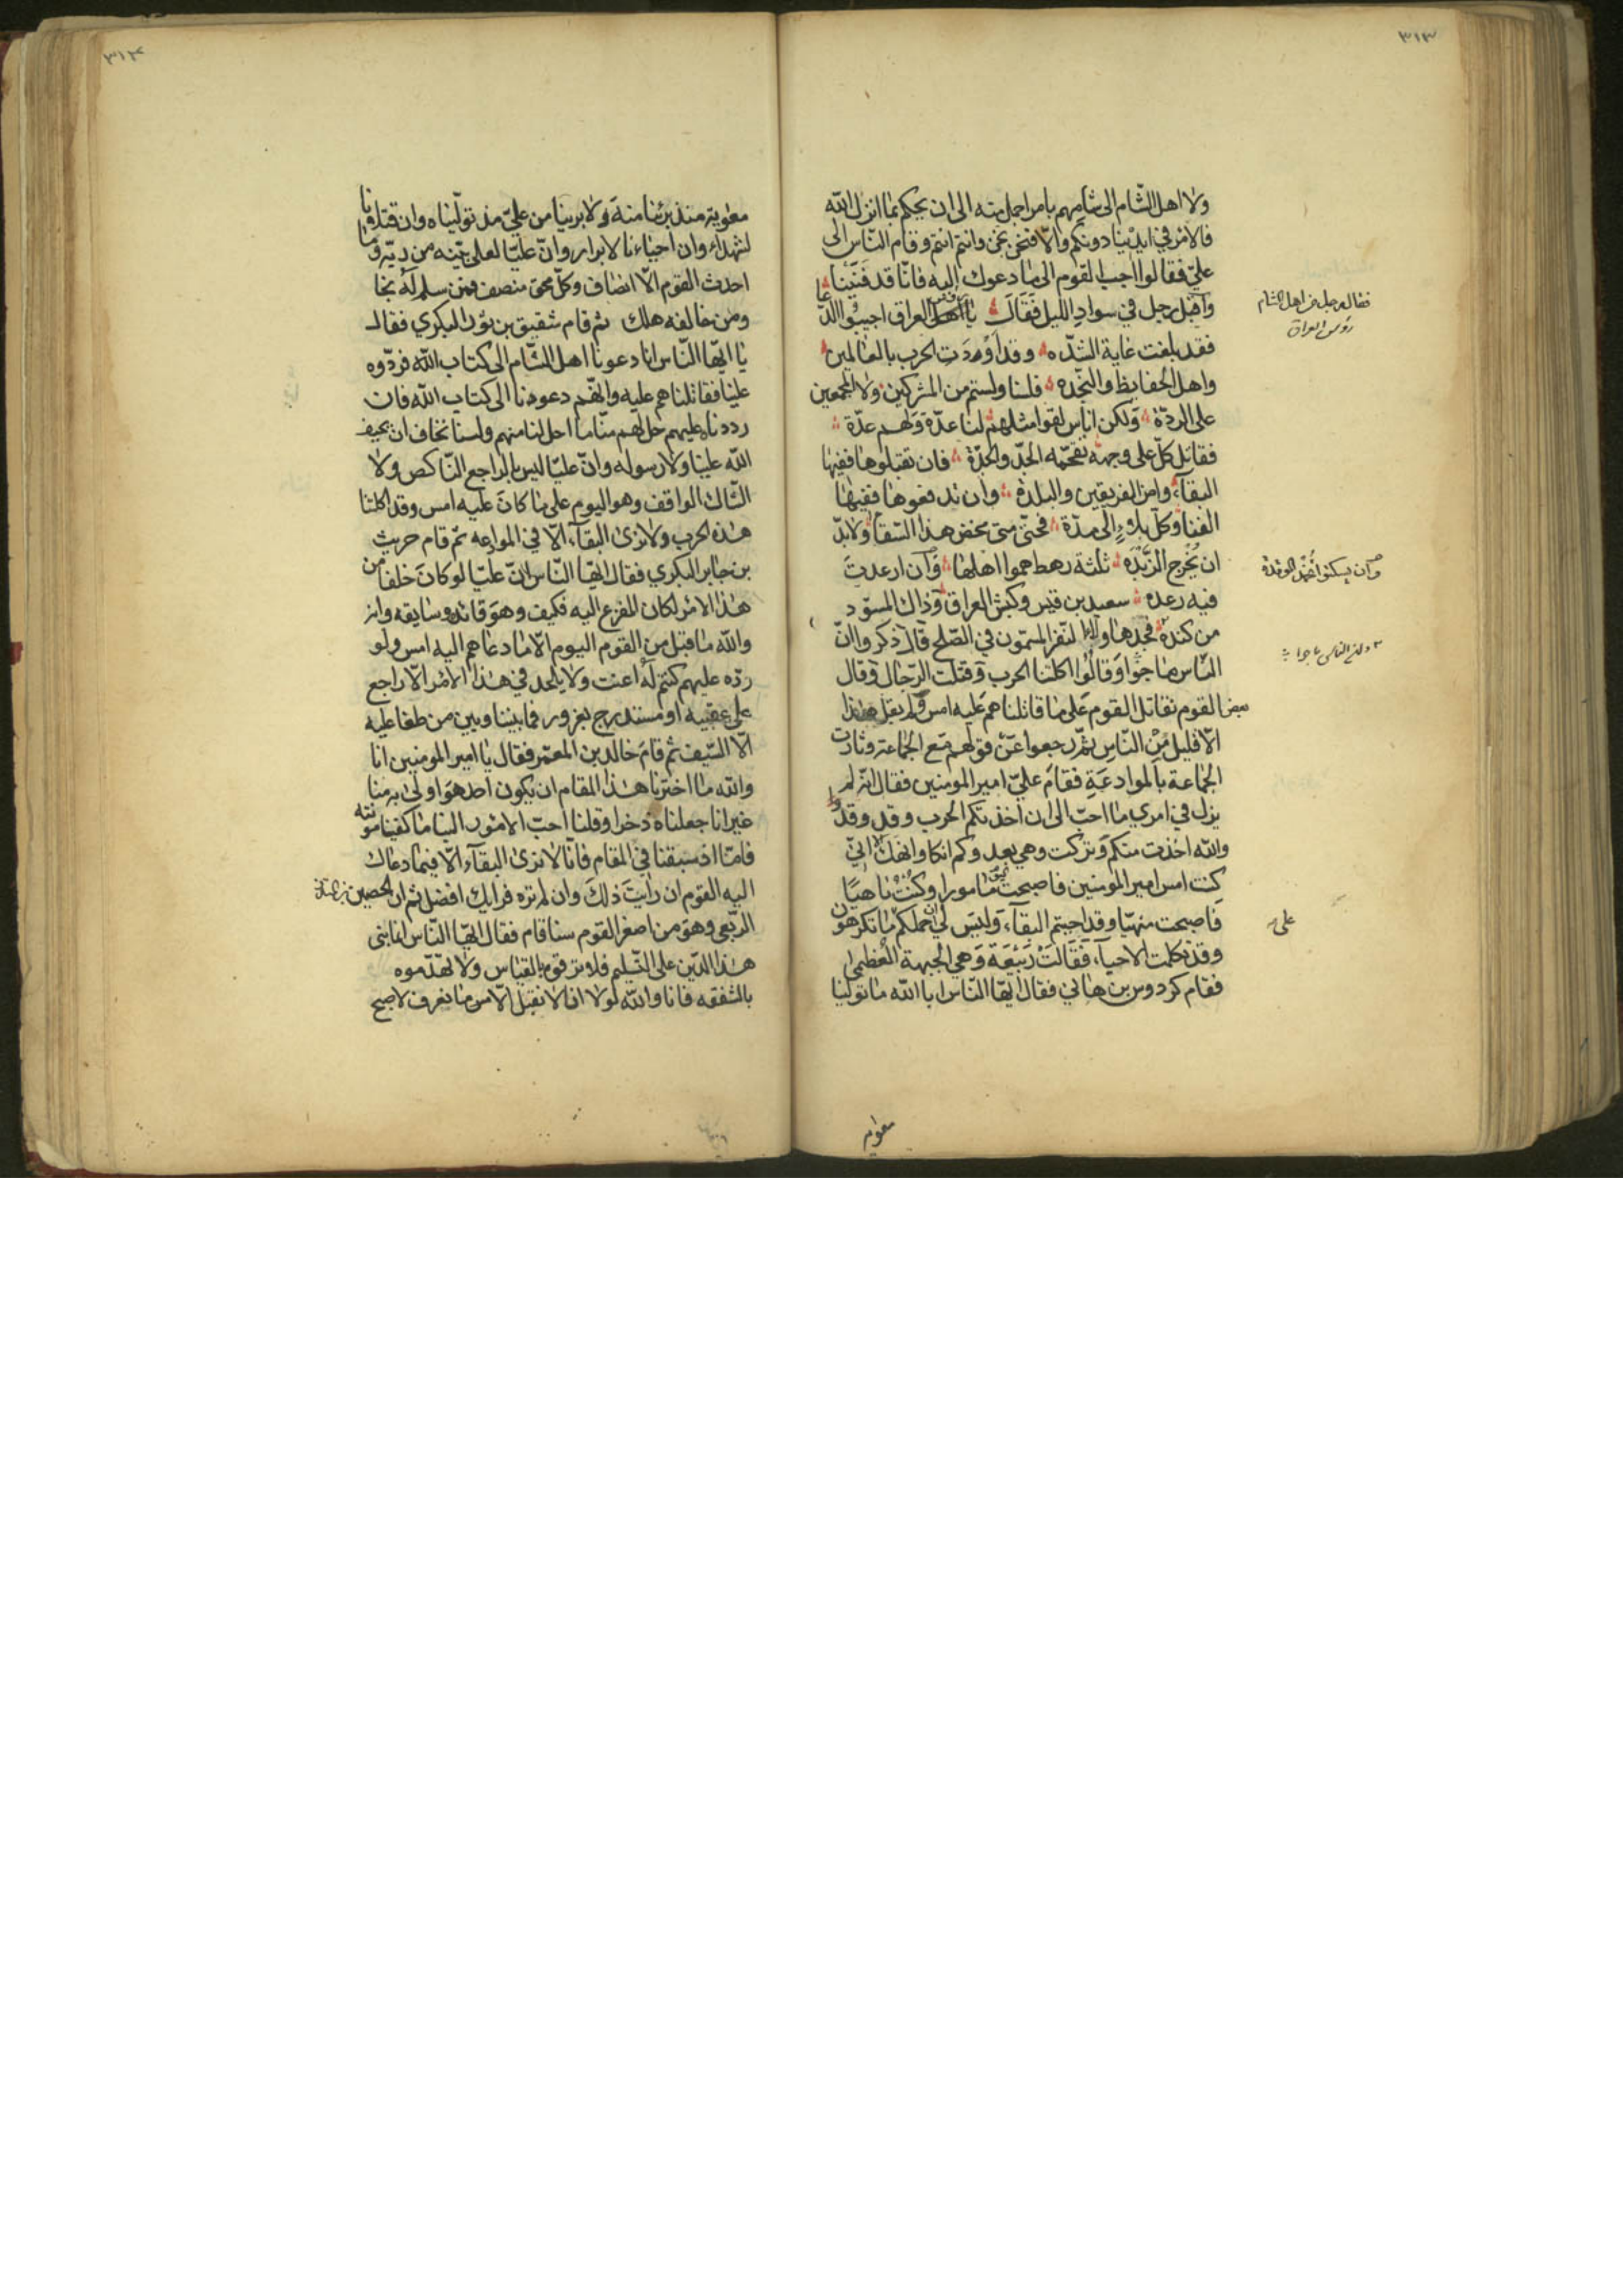 ٣١٣
ولا اهل الشّام الى شامهم بامر اجمل منه الى ان يحكم بما انزل الله
فالامر في ايدينا دونكم والّا فنحن نحن وانتم انتم وقام النّاس الى
عليّ فقالوا اجب القوم الى ما دعوك اليه فانّا قد فنينا
واقبل رجل في سواد الليل فقال يا اهل العراق اجيبوا الدعا
فقد بلغت غاية الشدّه وقد اودت الحرب بالعالمين
واهل الحفايظ والنجده فلسنا ولستم من المشركين ولا المجمعين
على الردّة ولكن اناس لقوا مثلهم لنا عدّة ولهم عدّة
فقاتل كلّ على وجهه تقحّمه الجدّ والجدّة فان تقبلوها ففيها
البقآء وامن الفريقين والبلدة وان تدفعوها ففيها
الفنا وكلّ بلاء الى مدّة فحتّى متى مخض هذا السقا ولا بدّ
ان يخرج الزبده ثلثة رهط هموا اهلها وان
فيه رعده سعيد بن قيس وكبش العراق وذاك المسوّد
من كندة فحمدها ولا النفر المسمّون في الصّلح قال ذكروا انّ
النّاس ماجوا وقالوا اكلتنا الحرب وقتلت الرّجال وقال
بعض القوم نقاتل القوم على ما قاتلناهم عليه امس ولم يقل هذا
الّا قليل من النّاس ثمّ رجعوا عن قولهم مع الجماعة وثارت
الجماعة بالموادعة فقام عليّ امير المومنين فقال انّه لم
يزل في امري ما احبّ الى ان اخذتكم الحرب وقد
والله اخذت منكم وتركت وهي بعد وكم انكا وانهك الا انّي
كنت امس امير المومنين فاصبحت اليوم مامورا وكنت ناهيًا
فاصبحت منهيّا وقد احببتم البقآء وليس لي ان احملكم ما تكرهون
وقد تكلمت الاحيآء فقالت ربيعة وهي الجبهة العظمى
فقام كردوس بن هاني فقال ايّها النّاس انا والله ما تولينا
فقال رجل من اهل الشام
رؤس العراق
وان يسكنوا تخمد الوقدة
على
معوية
٣١٤
معوية منذ تبرّئنا منه ولا برينا من عليّ منذ تولّيناه وان قتلانا
لشهداء وان احياءنا لابرار وانّ عليّا لعلى بيّنه من ربّه وما
احدث القوم الّا انصاف وكلّ محق منصف فمن سلم له نجا
ومن خالفه هلك ثم قام شقيق بن ثور البكري فقال
يا ايّها النّاس انا دعونا اهل الشّام الى كتاب الله فردّوه
علينا فقاتلناهم عليه وانّهم دعونا الى كتاب الله فان
رددناه عليهم حل لهم منّا ما احل لنا منهم ولسنا نخاف ان يحيف
الله علينا ولا رسوله وانّ عليّا ليس بالراجع النّاكص ولا
الشّاك الواقف وهو اليوم على ما كان عليه امس وقد اكلتنا
هذه الحرب ولا نرى البقآء الّا في الموادعه ثم قام حريث
بن جابر البكري فقال ايّها النّاس انّ عليّا لو كان خلفا من
هذا الامر لكان المفزع اليه فكيف وهو قائده وسايقه وانه
والله ما قبل من القوم اليوم الّا ما دعاهم اليه امس ولو
ردّه عليهم كنتم له اعنت ولا يلحد في هذا الامر الّا راجع
على عقبيه او مستدرج بغرور فما بيننا وبين من طغا عليه
الّا السّيف ثم قام خالد بن المعمّر فقال يا امير المومنين انا
والله ما اخترنا هذا المقام ان يكون احد هو اولى به منا
غير انا جعلناه ذخرا وقلنا احبّ الامور الينا ما كفينا مونته
فامّا اذ سبقنا في المقام فانّا لا نرى البقآء الّا فيما دعاك
اليه القوم ان رايت ذلك وان لم تره فرايك افضل ثم ان الحصين
الرّبعي وهو من اصغر القوم سنا قام فقال ايّها النّاس انما بني
هذا الدّين على التّسليم فلا توفروه بالقياس ولا تهدّموه
بالشفقه فانا والله لولا انا لا نقبل الّا من ما نعرف لاصبح